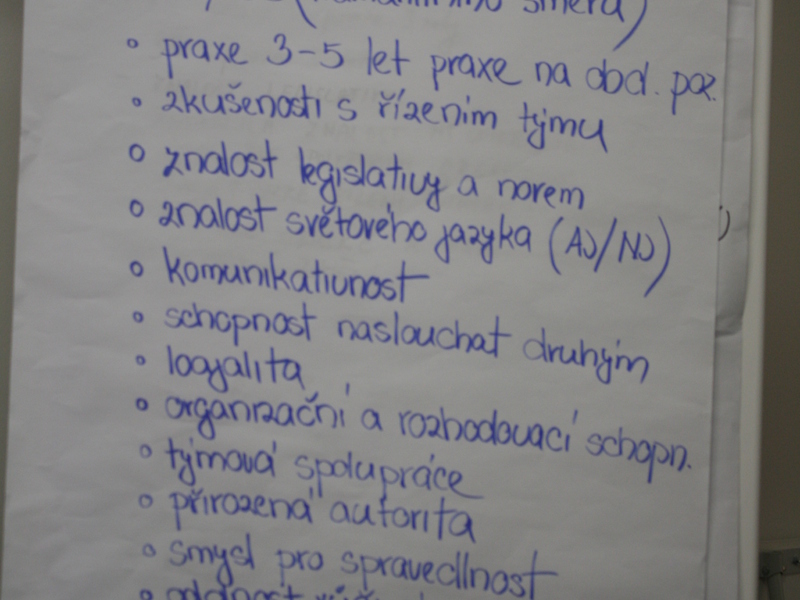 (humanitního směru)
praxe 3-5 let praxe na obd. poz.
zkušenosti s řízením týmu
znalost legislativy a norem
znalost světového jazyka (AJ/NJ)
komunikativnost
schopnost naslouchat druhým
loajalita
organizační a rozhodovací schopn.
týmová spolupráce
přirozená autorita
smysl pro spravedlnost